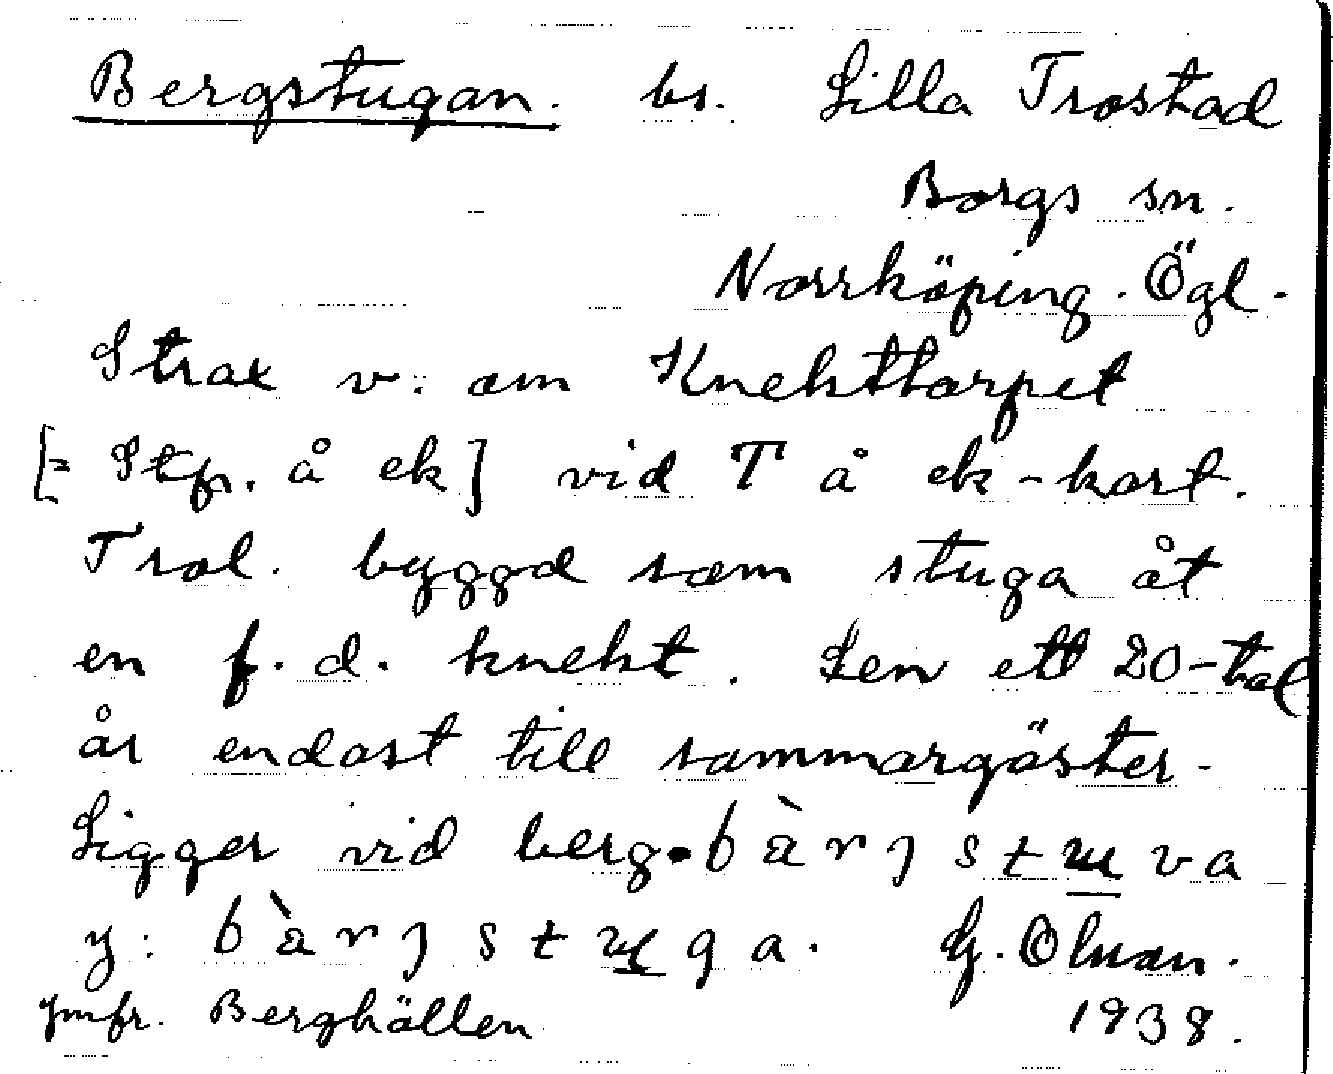 Bergstugan. bs. Lilla Trostad
Borgs sn.
Norrköping. Ögl.
Strax v. om Knekttorpet
[= Stp. å ek] vid T å ek-kart.
Trol. byggd som stuga åt
en f.d. knekt. Sen ett 20-tal
år endast till sommargäster.
Ligger vid berg. bàrjstuva
y: bàrjstuga. G. Olson.
Jmfr. Berghällen
1938.